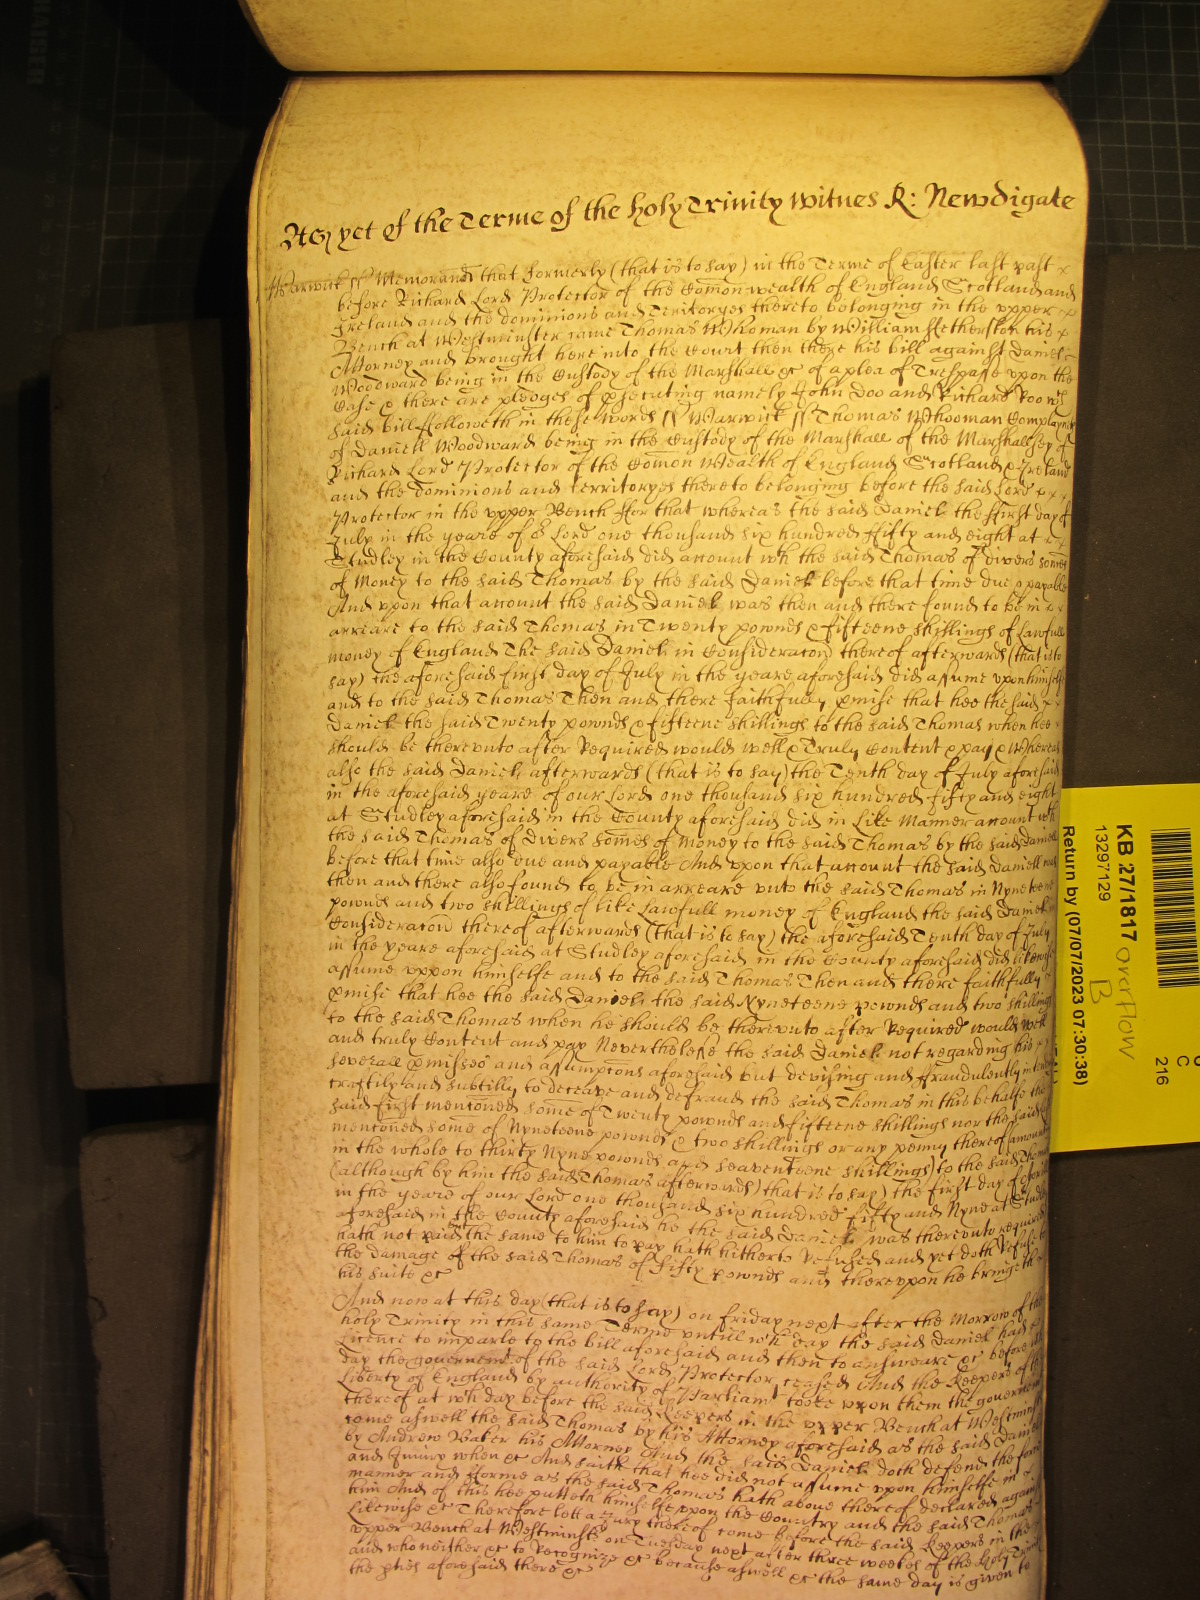 As yet of the Terme of the holy Trinity Witnes R: Newdigate
Warwick ss Memorand that formerly (that is to say) in the Terme of Easter last past
before Richard Lord Protector of the Comon wealth of England Scotland and
Ireland and the dominions and Territoryes thereto belonging in the upper
Bench at Westminster came Thomas Whoman by William Hetherston his
Attorney and brought here into the Court then there his bill against Daniel
Woodward being in the Custody of the Marshall &c of a plea of Trespasse upon the
Case & there are pledges of psecuting namely John Doo and Richard Roo wch
said bill followeth in these words ss Warwick ss Thomas Whooman Complayneth
of Daniell Woodward being in the Custody of the Marshall of the Marshallsey of
Richard Lord Protector of the Comon Wealth of England Scotland & Ireland
and the dominions and Territoryes thereto belonging before the said Lord
Protector in the upper Bench ffor that whereas the said Daniel the ffirst day of
July in the yeare of or Lord one thousand six hundred ffifty and eight at
Studley in the County aforesaid did account wth the said Thomas of divers somes
of Money to the said Thomas by the said Daniel before that time due & payable
And upon that account the said Daniel was then and there found to be in
arreare to the said Thomas in Twenty pownds & fifteene shillings of Lawfull
money of England The said Daniel in Consideracon thereof afterwards (that is to
say) the aforesaid first day of July in the yeare aforesaid did assume upon himself
and to the said Thomas Then and there faithfully pmise that hee the said
Daniel the said Twenty pownds & fifteene shillings to the said Thomas when hee
should be thereunto after Required would well & Truly Content & pay & Whereas
also the said Daniel afterwards (that is to say) the Tenth day of July aforesaid
in the aforesaid yeare of our Lord one thousand six hundred fifty and eight
at Studley aforesaid in the County aforesaid did in Like Manner account wth
the said Thomas of Divers somes of Money to the said Thomas by the said Daniell
before that time also due and payable And upon that account the said Daniell was
then and there also found to be in arreare unto the said Thomas in Nyneteene
pownds and two shillings of like Lawfull money of England the said Daniel in
Consideracon thereof afterwards (that is to say) the aforesaid Tenth day of July
in the yeare aforesaid at Studley aforesaid in the County aforesaid did likewise
assume uppon himselfe and to the said Thomas Then and there faithfully
pmise that hee the said Daniel the said Nyneteene pownds and two shillings
to the said Thomas when he should be thereunto after Required would well
and truly Content and pay Neverthelesse the said Daniel not regarding his
severall pmisses and assumpcons aforesaid but devising and ffraudulently intending
craftily and subtilly to deceave and defraud the said Thomas in this behalfe the
said first mentioned some of Twenty pownds and fifteene shillings nor the said
mentioned some of Nyneteene pownds & two shillings or any penny thereof (amounting
in the whole to thirty Nyne pownds and seaventeene shillings) to the said Thomas
(although by him the said Thomas afterwards) that is to say) the first day of
in the yeare of our Lord one thousand six hundred fifty and Nyne at Studley
aforesaid in the County aforesaid he the said Daniel was thereunto required
hath not paid the same to him to pay hath hitherto Refused and yet doth Refuse to
the damage of the said Thomas of fifty pownds and thereupon he bringeth
his suite &c
And now at this day (that is to say) on friday next after the Morrow of the
holy Trinity in this same Terme untill wch day the said Daniel had
Licence to imparle to the bill aforesaid and then to answeare &c before wch
day the government of the said Lord Protector ceased And the Keepers of the
Liberty of England by authority of Parliamt tooke upon them the government
thereof at wch day before the said Keepers in the upper Bench at Westminster
come aswell the said Thomas by his Attorney aforesaid as the said Daniel
by Andrew Baker his Attorney And the said Daniel doth defend the force
and Iniury when &c And saith that hee did not assume upon himselfe in
manner and fforme as the said Thomas hath above thereof declared against
him And of this hee putteth himselfe upon the Country and the said Thomas
Likewise &c Therefore lett a Jury thereof come before the said Keepers in the
upper Bench at Westminster on Tuesday next after three weekes of the holy Trinity
and who neither &c to Recognize &c because aswell &c the same day is given to
the pties aforesaid there &c
KB 27/1817 overflow
B
13297129
Return by (07/07/2023 07:30:38)
C
216